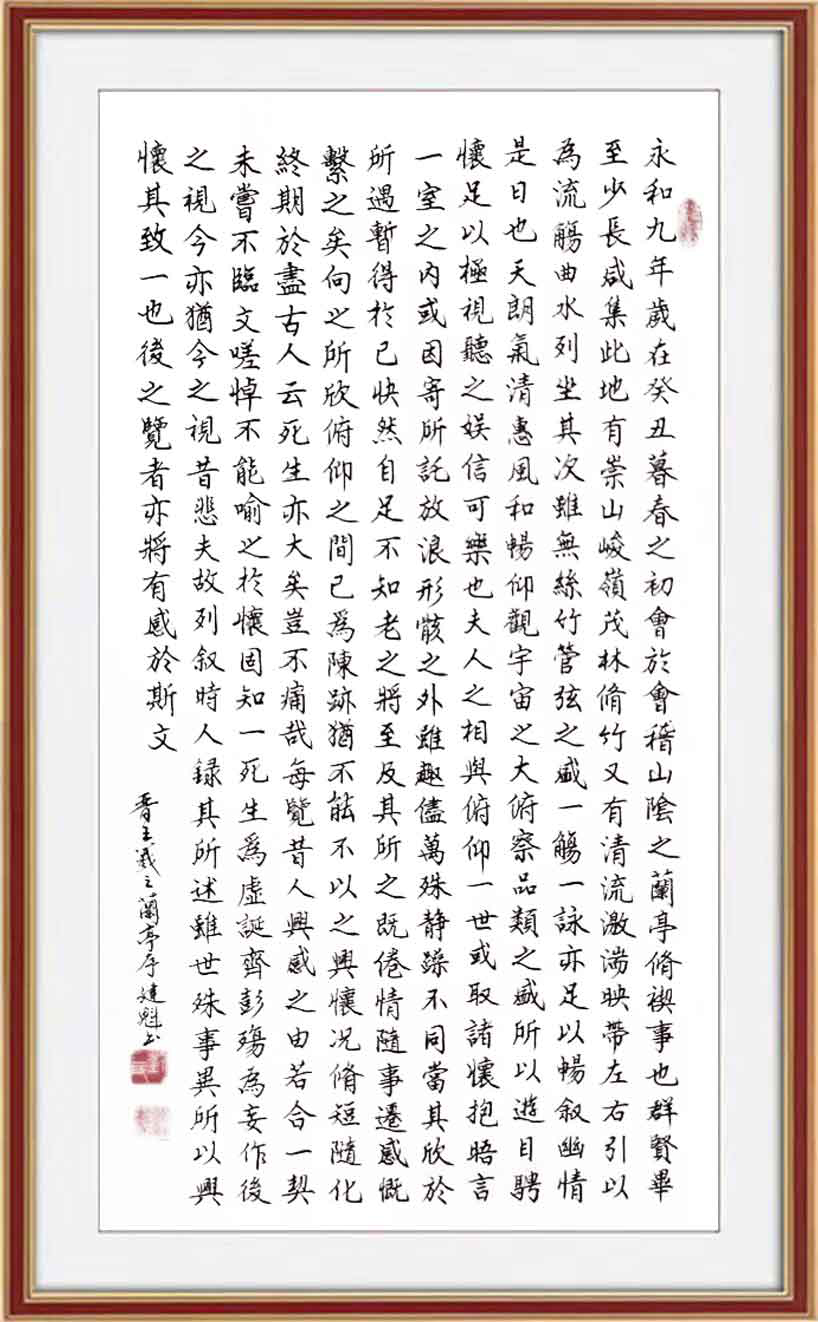 永和九年歲在癸丑暮春之初會於會稽山陰之蘭亭脩禊事也群賢畢
至少長咸集此地有崇山峻嶺茂林脩竹又有清流激湍映帶左右引以
為流觴曲水列坐其次雖無絲竹管弦之盛一觴一詠亦足以暢叙幽情
是日也天朗氣清惠風和暢仰觀宇宙之大俯察品類之盛所以遊目騁
懷足以極視聽之娛信可樂也夫人之相與俯仰一世或取諸懷抱晤言
一室之內或因寄所託放浪形骸之外雖趣儘萬殊静躁不同當其欣於
所遇暫得於己快然自足不知老之將至及其所之既倦情隨事遷感慨
繫之矣向之所欣俯仰之間已為陳跡猶不能不以之興懷况脩短隨化
終期於盡古人云死生亦大矣豈不痛哉每覽昔人興感之由若合一契
未嘗不臨文嗟悼不能喻之於懷固知一死生為虛誕齊彭殤為妄作後
之視今亦猶今之視昔悲夫故列叙時人録其所述雖世殊事異所以興
懷其致一也後之覽者亦將有感於斯文
晋王羲之蘭亭序建魁书